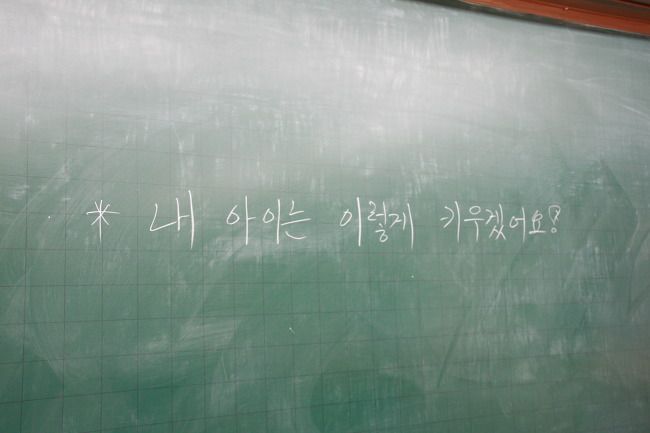 * 내 아이는 이렇게 키우겠어요!